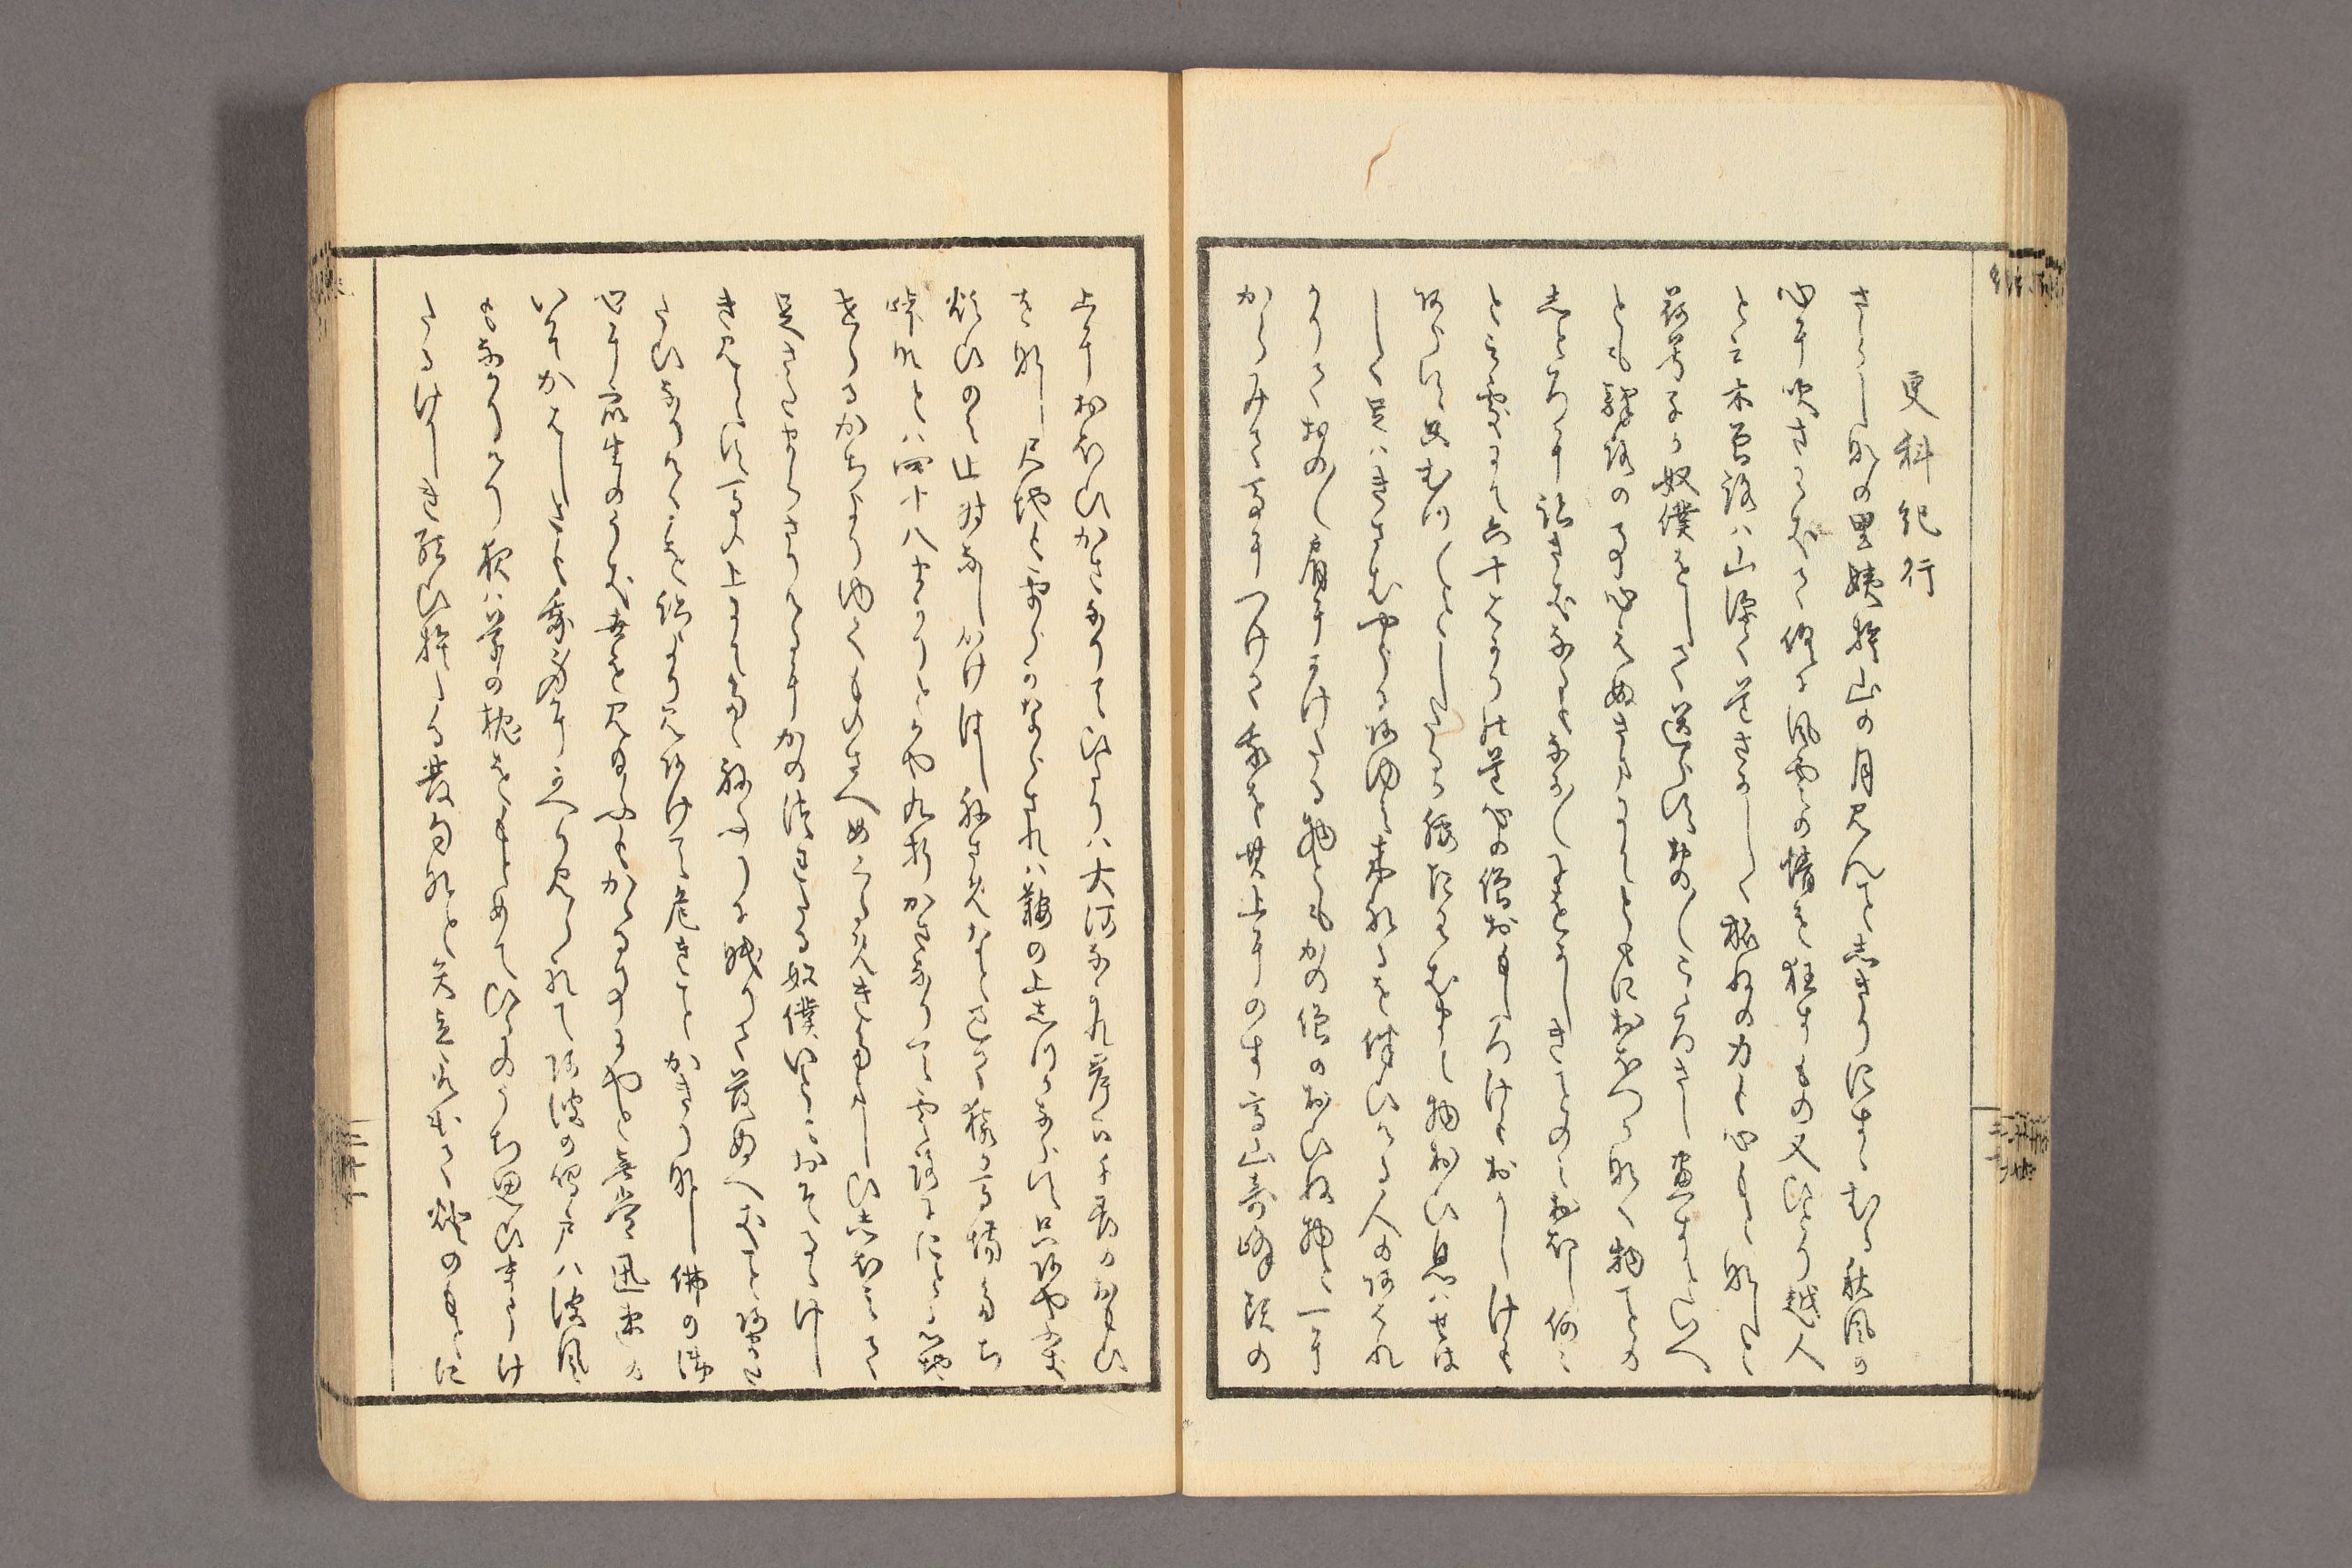 更科紀行
さらしなの里姨捨山の月見んとしきりにすゝむる秋風の
心に吹さわきて供に風雲の情を狂すもの又ひとり越人
と云木曽路は山深く道さかしく旅ねの力も心もとなしと
荷兮子か奴僕をして送らすおの〱こゝろさし尽すといへ
とも驛旅の事心えぬさまにてともにおほつかなく物ことの
しとろに跡さきなるも中〱にをかしきことのみおほし何〱
と云處にて六十はかりの道心の僧おもしろけもおかしけも
あらすたゝむつ〱としたるか腰たわむまて物おひ息はせは
しく足はきさむやうにあゆみ来れるを伴ひける人のあはれ
かりておの〱肩にかけたる物ともかの僧のおひね物と一に
からみて馬につけて我を其上にのす高山奇峰頭の
上におほひかさなりてひたりは大河なかれ岸下の千尋のおもひ
をなし尺地も平らかならされは鞍の上しつかならす只あやふき
煩ひのみ止時なしかけはしねさめなと過て猿か馬場たち
峠なとは四十八まかりとかや九折かさなりて雲路にたとる心地
せらるかちよりゆくものさへ眼くるめきたましひしほみて
足さたまらさりけるにかの伴たる奴僕いともおそるゝけし
き見えす馬の上にて只ねふりに眠りて落ぬへき事あまたゝ
ひなりけるを跡より見あけて危きことかきりなし佛の御
心に衆生のうき世を見給ふもかゝる事にやと無常迅速の
いそかはしさも我身にかへり見られてあはの鳴戸は波風
もなかりけり夜は草の枕をもとめてひるのうち思ひまうけ
たるけしき結ひ捨たる發句なと矢立取出て燈のもとに